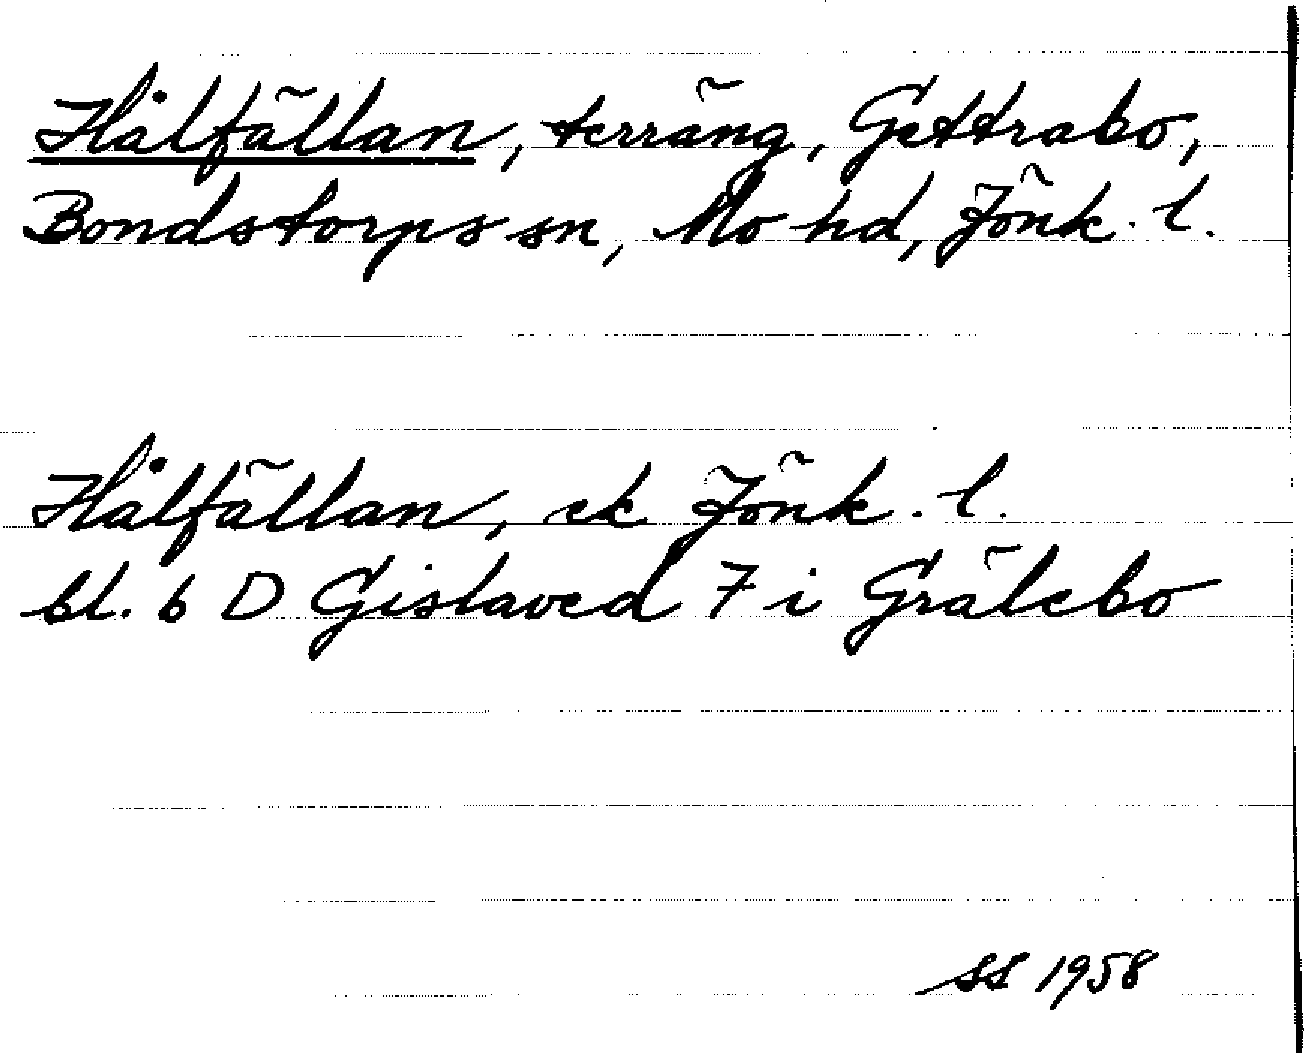 Hålfällan, terräng, Gettrabo,
Bondstorps sn, Mo hd, Jönk. l.
Hålfällan, ek Jönk. l.
bl. 6 D Gislaved 7 i Grälebo
SS 1958